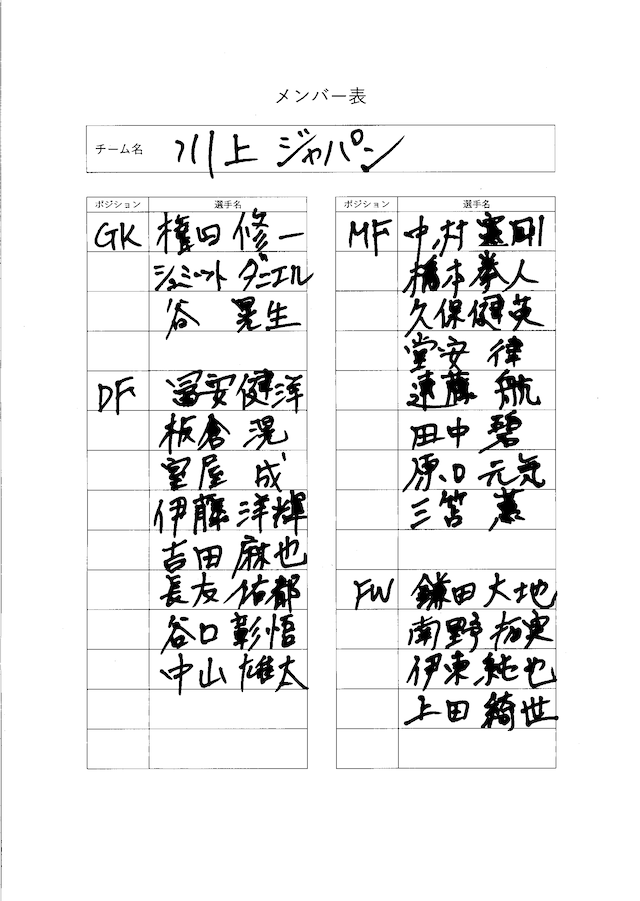 メンバー表
チーム名 川上 ジャパン
ポジション 選手名
GK 権田 修一
シュミット ダニエル
谷 晃生
DF 冨安健洋
板倉 滉
室屋 成
伊藤 洋輝
吉田 麻也
長友 佑都
谷口 彰悟
中山 雄太
ポジション 選手名
MF 中村 憲剛
橋本 拳人
久保 健英
堂安 律
遠藤 航
田中 碧
原口 元気
三笘 薫
FW 鎌田 大地
南野 拓実
伊東 純也
上田 綺世